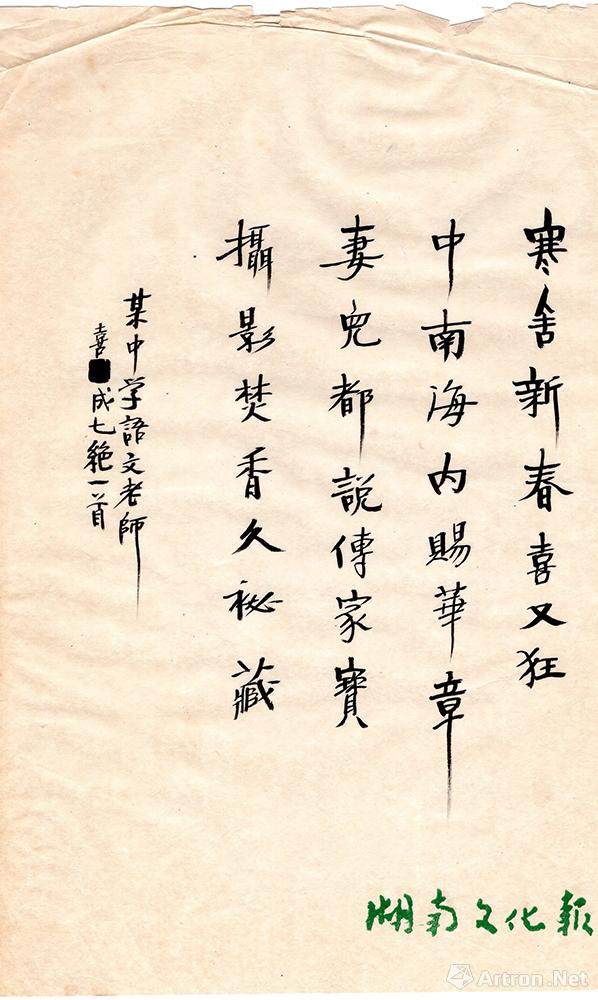 寒舍新春喜又狂
中南海内賜華章
妻兒都說傳家寶
攝影焚香久祕藏
某中学語文老師
喜成七絕一首
湖南文化報
Artron.Net